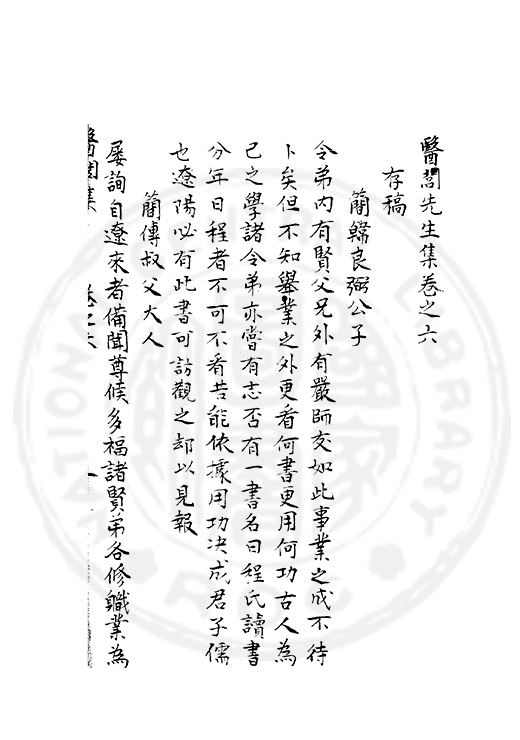 醫閭先生集卷之六
存稿
簡韓良弼公子
令弟內有賢父兄外有嚴師友如此事業之成不待
卜矣但不知舉業之外更看何書更用何功古人為
己之學諸令弟亦嘗有志否有一書名曰程氏讀書
分年日程者不可不看若能依據用功決成君子儒
也遼陽必有此書可訪觀之却以見報
簡傅叔父大人
屡詢自遼來者備聞尊候多福諸賢弟各修職業為
醫閭集 卷之六 一